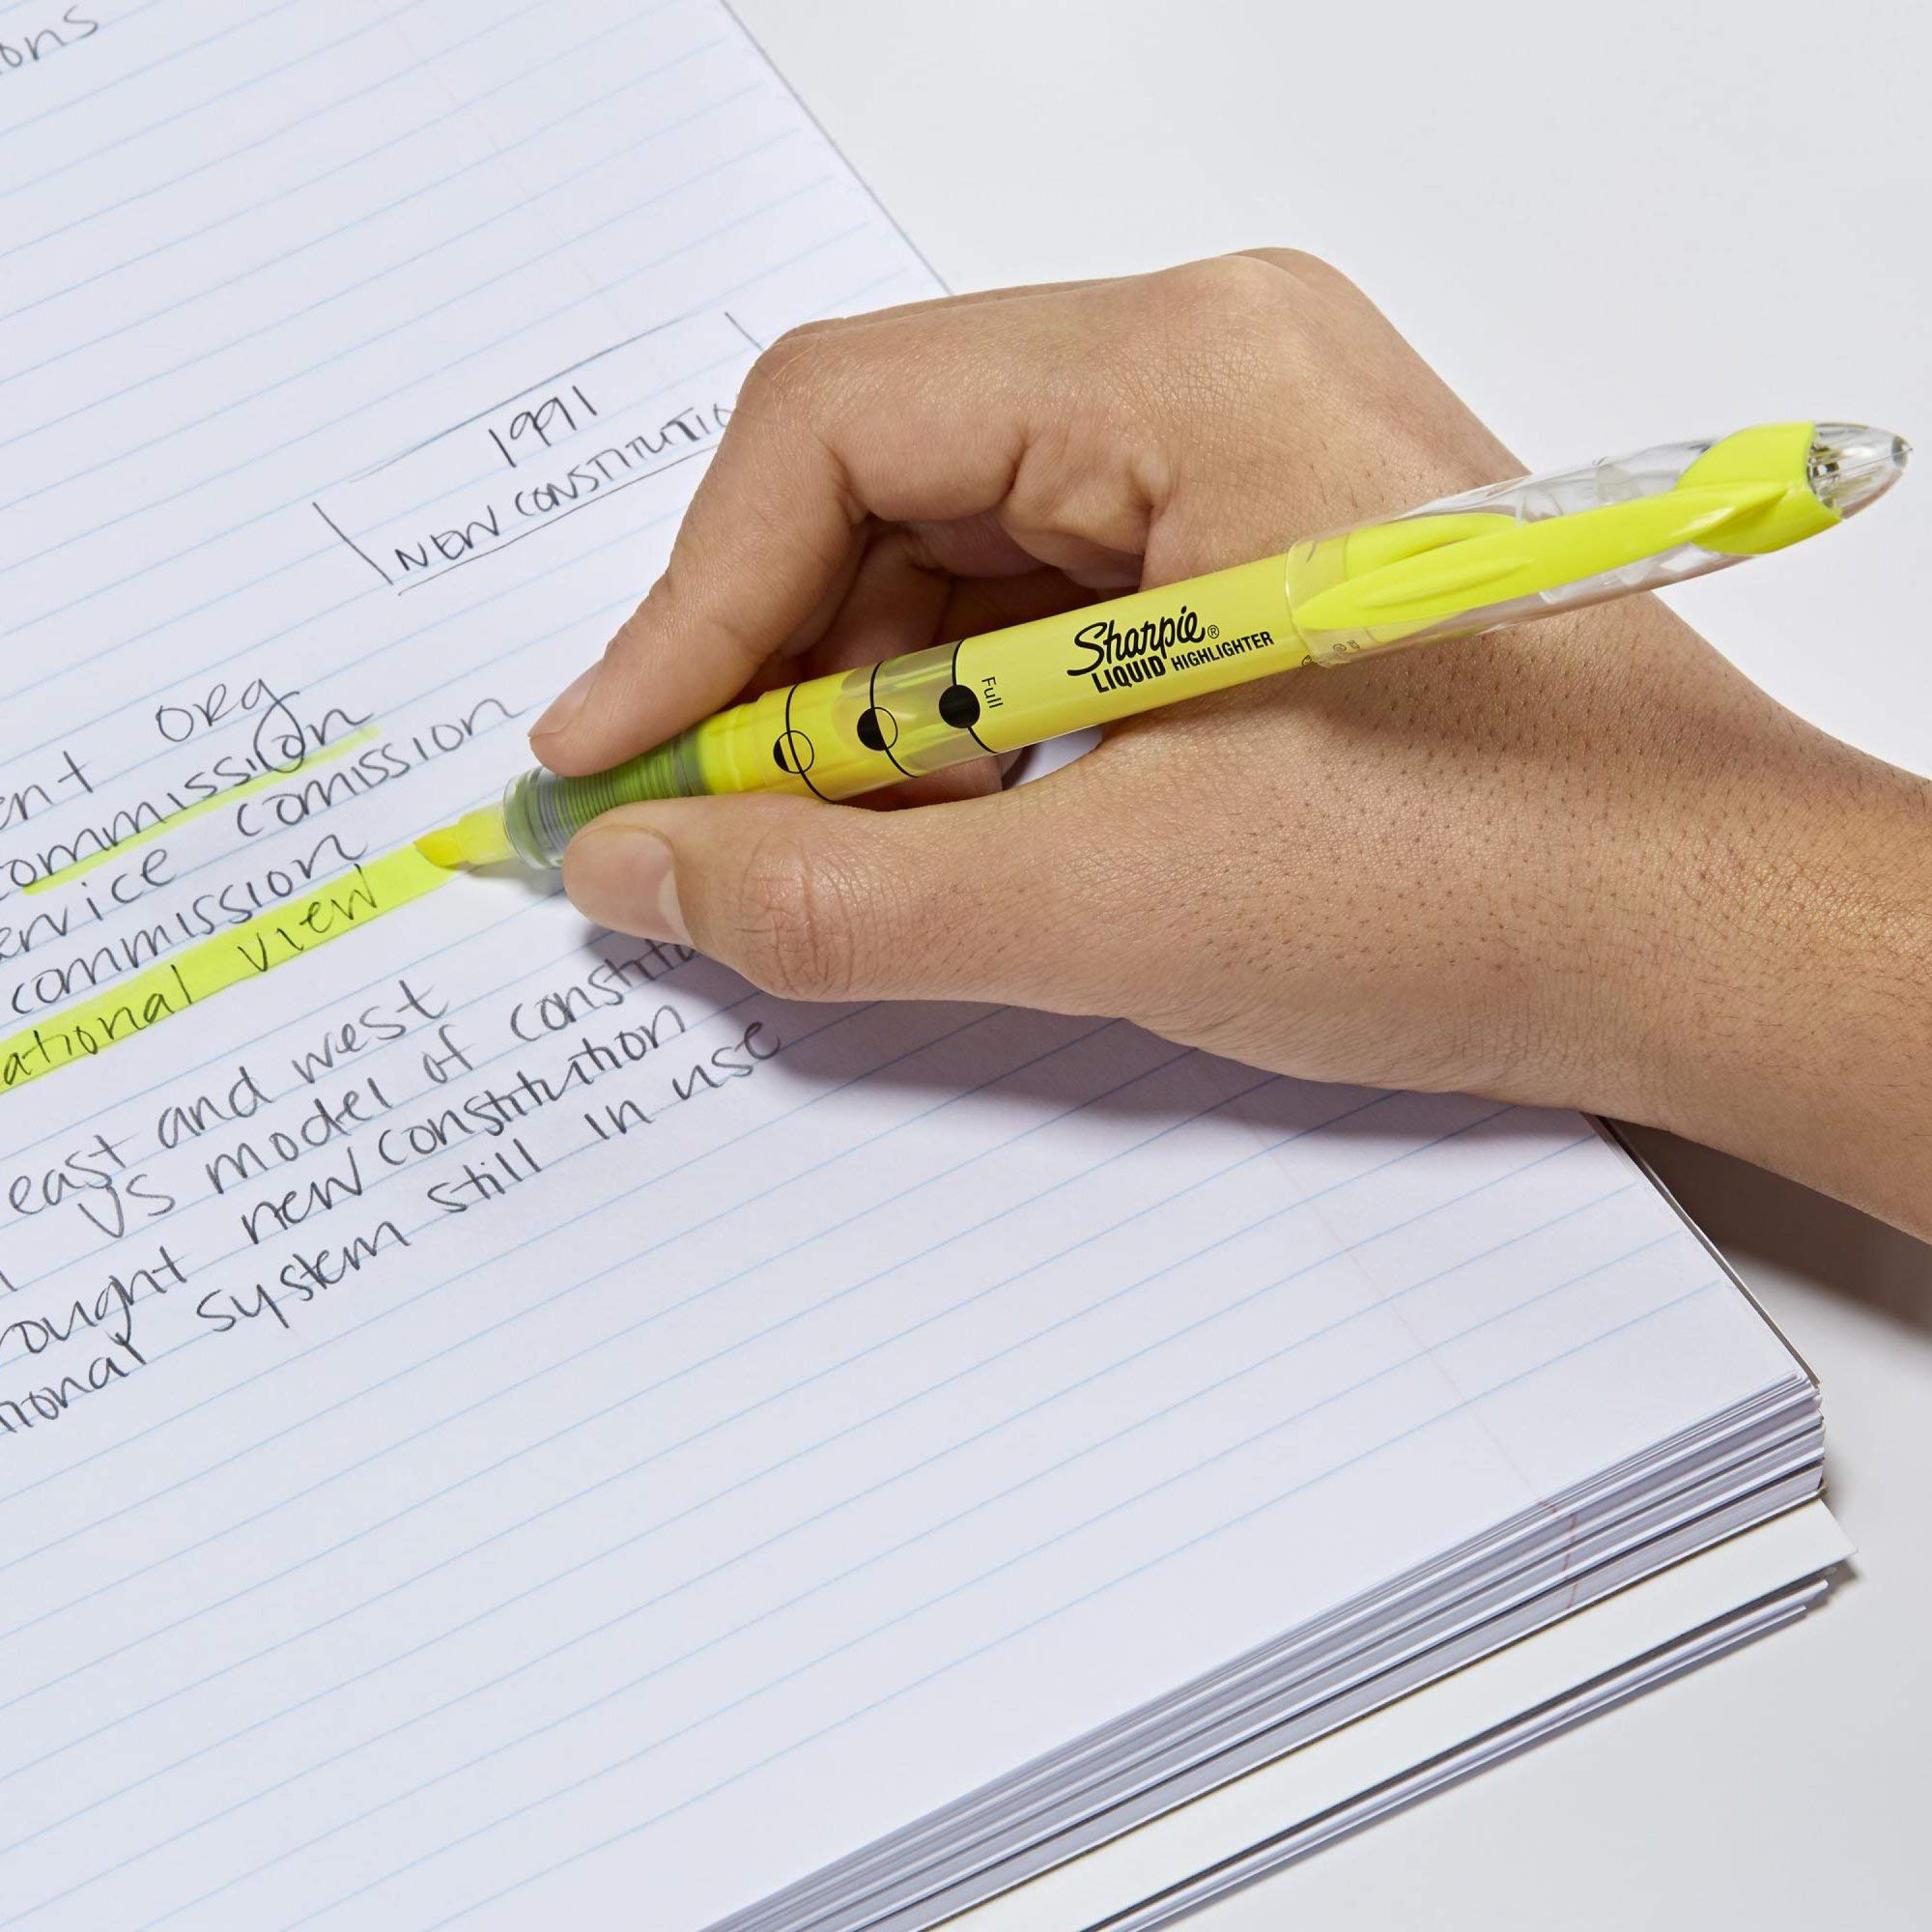 ons
1991
NEW CONSTITUTIO
ent org
ommission
ervice comission
commission
ational view
east and west
vs model of constitu
rought new constitution
tional system still in use
Sharpie®
LIQUID HIGHLIGHTER
Full